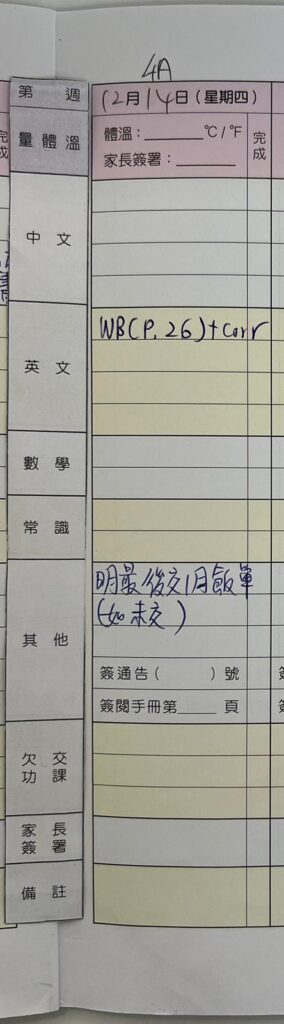 4A
第 週
12月14日(星期四)
量體溫
體溫：______℃/℉
家長簽署：______
完成
中 文
英 文
WB(P. 26)+Corr
數 學
常 識
其 他
明最後交1月飯單
(如未交)
簽通告( )號
簽閱手冊第____頁
欠 交
功 課
家 長
簽 署
備 註